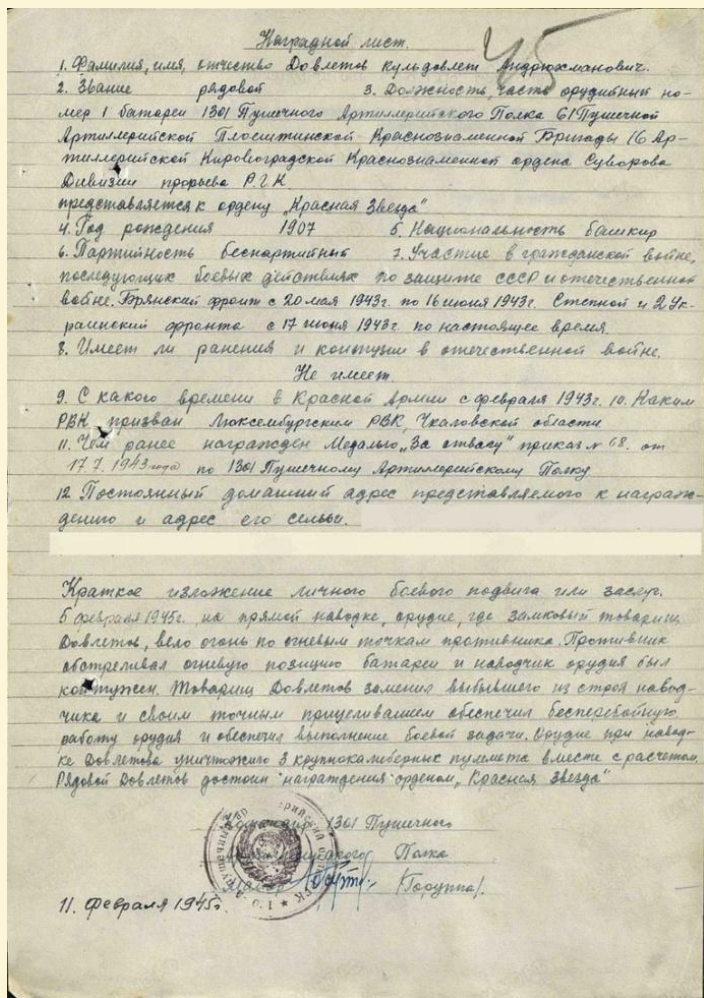 Наградной лист.
45
1. Фамилия, имя, отчество Довлетов Кульдовлет Андрюхманович.
2. Звание рядовой 3. Должность, часть орудийный но-
мер 1 батареи 1301 Пушечного Артиллерийского Полка 61 Пушечной
Артиллерийской Плоештинской Краснознаменной Бригады 16 Ар-
тиллерийской Кировоградской Краснознаменной ордена Суворова
Дивизии прорыва Р.Г.К
представляется к ордену „Красная Звезда"
4. Год рождения 1907 5. Национальность башкир
6. Партийность беспартийный 7. Участие в гражданской войне,
последующих боевых действиях по защите СССР и отечественной
войне. Брянский фронт с 20 мая 1943г. по 16 июня 1943г. Степной и 2 Ук-
раинский фронта с 17 июня 1943г. по настоящее время.
8. Имеет ли ранения и контузии в отечественной войне.
Не имеет.
9. С какого времени в Красной Армии с февраля 1943г. 10. Каким
РВК призван Люксембургским РВК, Чкаловской области
11. Чем ранее награжден Медалью „За отвагу" приказ № 68. от
17.7.1943 года по 1301 Пушечному Артиллерийскому Полку
12 Постоянный домашний адрес представляемого к награж-
дению и адрес его семьи.
Краткое изложение личного боевого подвига или заслуг.
5 февраля 1945г. на прямой наводке, орудие, где замковый товарищ
Довлетов, вело огонь по огневым точкам противника. Противник
обстреливал огневую позицию батареи и наводчик орудия был
контужен. Товарищ Довлетов заменил выбывшего из строя навод-
чика и своим точным прицеливанием обеспечил бесперебойную
работу орудия и обеспечил выполнение боевой задачи. Орудие при навод-
ке Довлетова уничтожило 3 крупнокалиберных пулемета вместе с расчетом.
Рядовой Довлетов достоин награждения орденом „Красная Звезда"
Командир 1301 Пушечного
Артиллерийского Полка
/Горуппа/.
11. февраля 1945г.